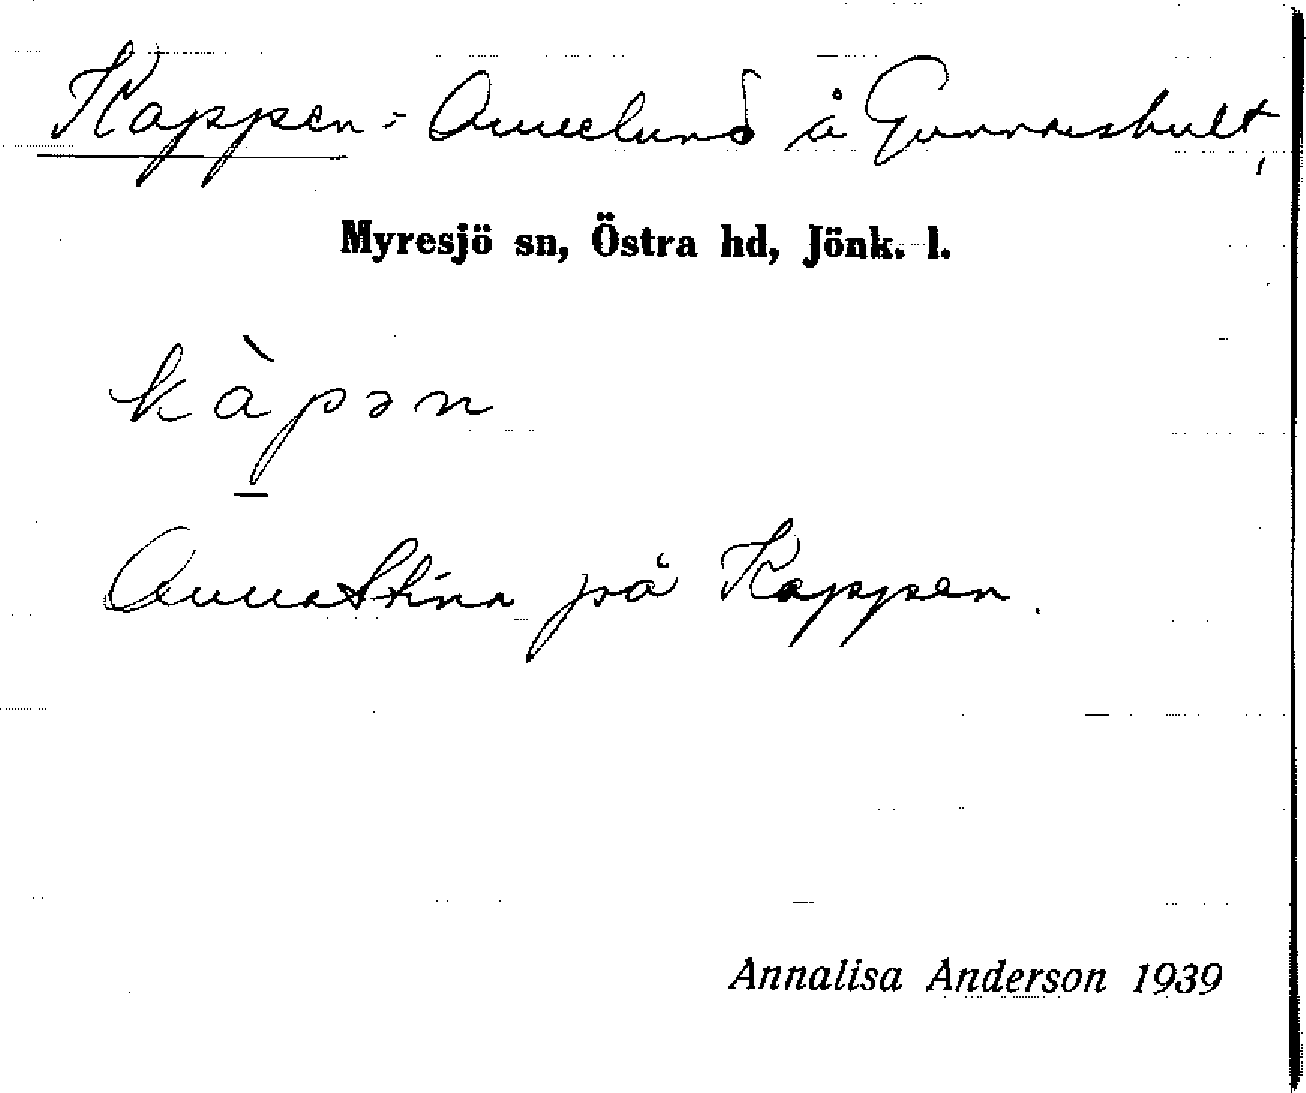 Kappen = Annelund å Gunnarshult,
Myresjö sn, Östra hd, Jönk. l.
kàpən
Anna Stina på Kappen.
Annalisa Anderson 1939